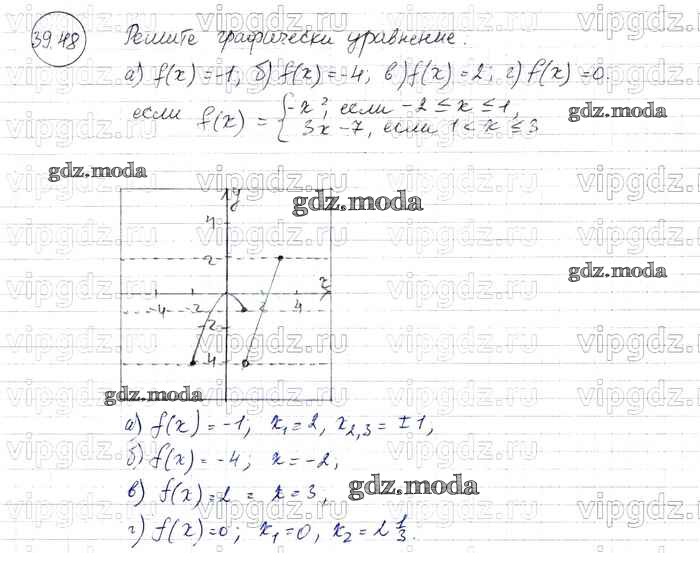 39.48 Решите графически уравнение.
а) f(x) = -1, б) f(x) = -4, в) f(x) = 2; г) f(x) = 0.
если f(x) = { -x², если -2 ≤ x ≤ 1,
3x - 7, если 1 < x ≤ 3
gdz.moda
gdz.moda
gdz.moda
gdz.moda
y
4
2
x
-4 -2 2 4
-2
-4
gdz.moda
а) f(x) = -1, x₁ = 2, x₂,₃ = ±1,
б) f(x) = -4; x = -2;
в) f(x) = 2 = x = 3,
gdz.moda
г) f(x) = 0; x₁ = 0, x₂ = 2 1/3.
vipgdz.ru